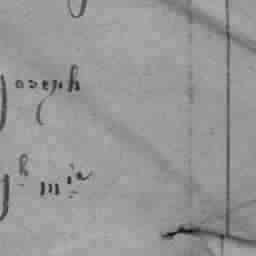 Joseph
Jh mia